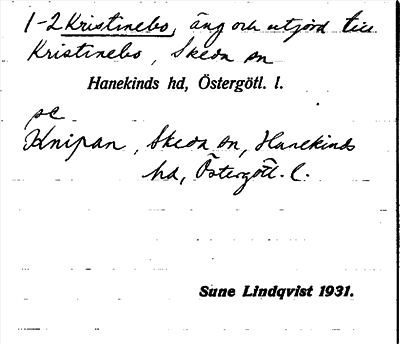 1-2 Kristinebo, äng och utjord till
Kristinebo, Skeda sn
Hanekinds hd, Östergötl. l.
se
Knipan, Skeda sn, Hanekinds
hd, Östergötl. l.
Sune Lindqvist 1931.